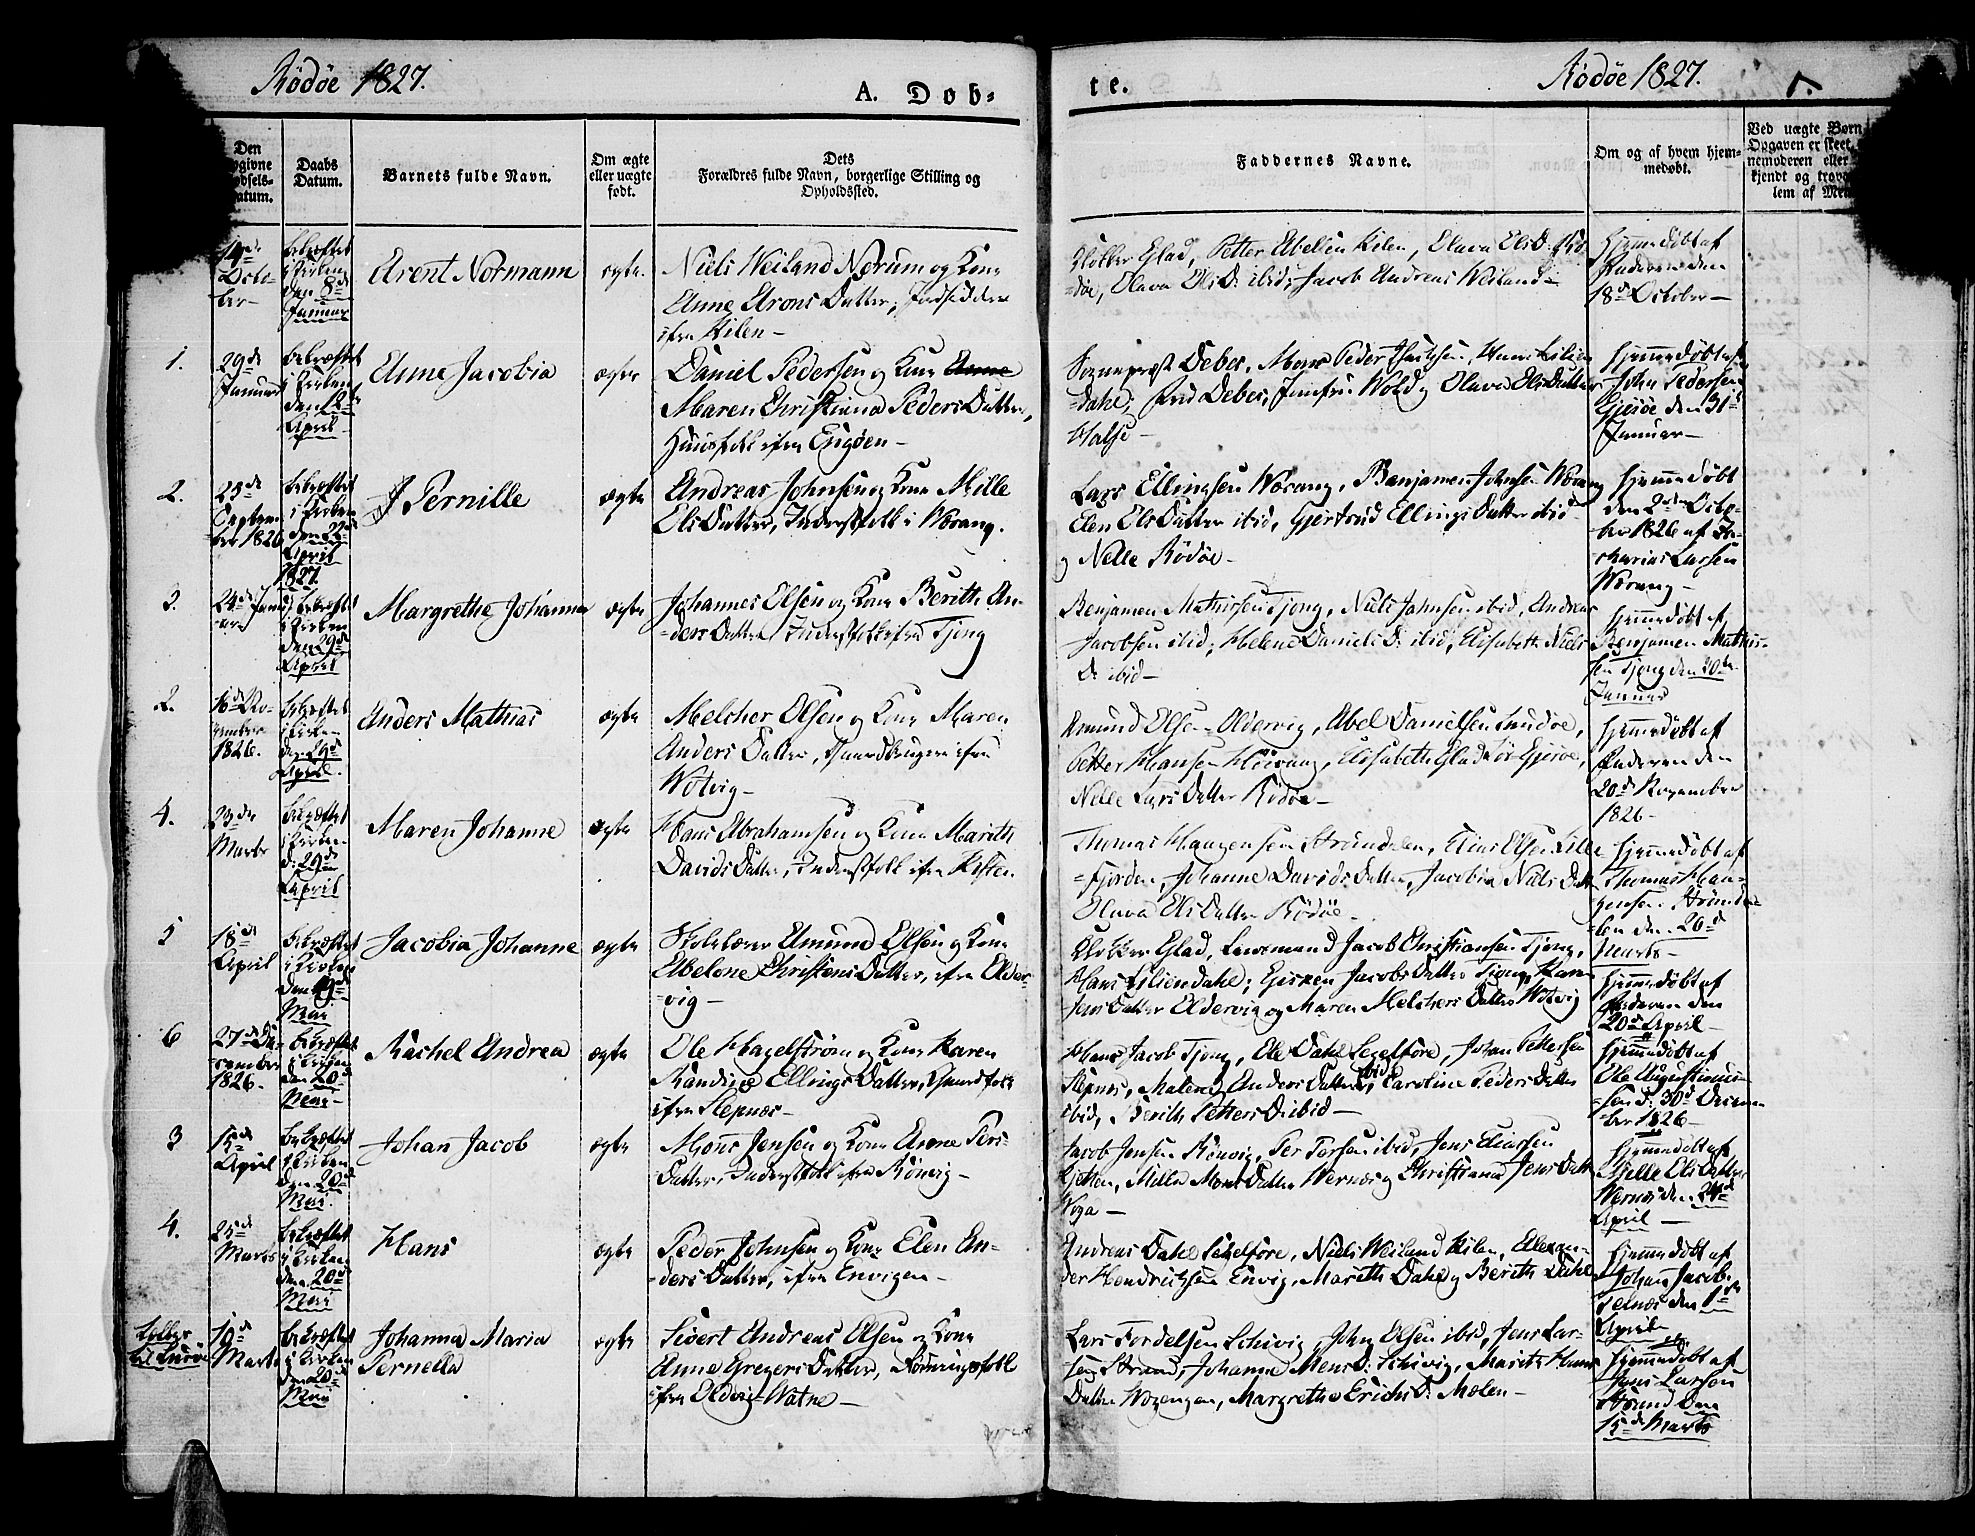 Rødøe 1827.
A. Døb-
te.
Rødøe 1827.
Den
Daabs
Datum.
Barnets fulde Navn.
Om ægte
eller uægte
født.
Dets
Forældres fulde Navn, borgerlige Stilling og
Opholdssted.
Faddernes Navne.
Om og af hvem hjem-
medøbt.
Ved uægte Børn
Opgaven er skeet,
14de
Octo-
ber
bekræftet
i Kirken
den 8de
Januar
Arent Normann
ægte
Niels Weiland Nørum og Kone
Anne Arons Datter,
ifra Kilen -
Klokker Glad, Petter Abelsen Kilen, Olava Els D: Rø-
døe, Olava Els D: ibid, Jacob Andreas Weiland -
Hjemmedøbt af
Faderen den
18de October -
1.
29de
Januar
bekræftet
i Kirken
den
April
Anne Jacobia
ægte
Daniel Pedersen og Kone Anne
Maren Christiana Peders Datter,
Huusfolk ifra Engøen -
Sognepræst Debes, Hans Lilien
-dahl, Debes, Jomfru Wold og Olava Els Datter
Halse -
Hjemmedøbt af
John Pedersen
Gjerøe den 31te
Januar -
2.
23de
Septem-
ber 1826
bekræftet
i Kirken
den 22de
April
1827.
Pernille
ægte
Andreas Johnsen og Kone Mille
Els Datter, Inderstfolk i Worang.
Lars Ellingsen Worang, Benjamin Johnsen Worang
Elen Els Datter ibid, Gjertrud Ellings Datter ibid
og Nelle Rødøe -
Hjemmedøbt
den 2den Octo-
ber 1826 af Za-
charias Larsen
Worang -
3.
24de Janu-
ar
bekræftet
i Kirken
den 29de
April
Margrethe Johanna
ægte
Johannes Olsen og Kone Berith An-
-ders Datter, Inderstfolk ifra Tjong
Benjamin Mathisen Tjong, Niels Johnsen ibid, Andreas
Jacobsen ibid; Helene Daniels D: ibid, Elisabeth Niels
D: ibid -
Hjemmedøbt af
Benjamin Mathis-
sen Tjong den 30de
Januar
2.
16de No-
vember
1826.
bekræftet
i Kirken
den 29de
April.
Anders Mathias
ægte
Melcher Olsen og Kone Maren
Anders Datter, Gaardbruger ifra
Wotvig -
Amund Olsen Oldervig, Abel Danielsen
Petter Hansen Elisabeth Glad Gjerøe,
Nelle Lars Datter Rødøe -
Hjemmedøbt af
Faderen den
20de November
1826 -
4.
23de
Marts
bekræftet
i Kirken
d: 29de
April
Maren Johanne
ægte
Hans Abrahamsen og Kone Marith
Davids Datter, Inderstfolk ifra Kisten
Thomas Haagensen Strømdalen, Elias Elsen Lille
-fjorden, Johanne Davids Datter, Jacobia Niels Datt
Olava Els Datter Rødøe -
Hjemmedøbt af
Thomas Haa-
gensen
den 26de
Marts -
5
18de
April
bekræftet
i Kirken
den 19de
Mai
Jacobia Johanne
ægte
Skolelærer Amund Elsen og Kone
Abelone Christens Datter, ifra Older-
-vig -
Klokker Glad, Lensmand Jacob Christiansen Tjong,
Hans Liliendahl; Jacobs Datter Tjong, Karen
Jens Datter Eldervig og Maren Melchers Datter Wotvig
Hjemmedøbt af
Faderen den
20de April -
6
27de De-
cember
1826.
bekræftet
i Kirken
den 20de
Mai -
Rachel Andrea
ægte
Ole Hagelstrøm og Kone Karen
Randine Ellings Datter,
ifra Slepnæs -
Hans Jacob Tjong, Ole Dahl Segelføre, Johan Pettersen
Slepnæs, Malene Anders Datter ibid, Caroline Peders Datter
ibid, Berith Petters D: ibid -
Hjemmedøbt af
Ole Augustinus-
-sen d: 30de Decem-
ber 1826 -
3
15de
April
bekræftet
i Kirken
den 20de
Mai.
Johan Jacob
ægte
Mons Jensen og Kone Anne Pers-
Datter, Inderstfolk ifra Rønvig -
Jacob Jensen Rønvig, Per Persen ibid, Jens Eliassen
Kjetten, Mille Mons Datter Wernæs og Christiana Jens Datt
Woga -
Hjemmedøbt af
Pelle Els Datter
Wernæs den 24de
April -
4.
25de
Marts
bekræftet
i Kirken
den 20de
Mai
Hans
ægte
Peder Johnsen og Kone Elen An-
-ders Datter, ifra Envigen -
Andreas Dahl Segelføre, Niels Weiland Kilen, Alexan-
der Hendrichsen Envig, Marith Dahl og Berith Dahl
Hjemmedøbt af
Johan Jacob
Selnæs den 1ste
April -
til Lurøe
10de
Marts
bekræftet
i Kirken
den 20de
Mai
Johanna Maria
Pernella
ægte
Sivert Andreas Elsen og Kone
Anne Gregers Datter, Rørningsfolk
ifra Oldervig-Watne -
Lars Fordelsen Schivig, John Olsen ibid, Jens Lar-
sen Strand, Johanne Mons D: Schivig, Marith Hans
Datter Wogengen, Margrethe Erichs D: Melen -
Hjemmedøbt af
Jens Larsen
Strand den
15de Marts